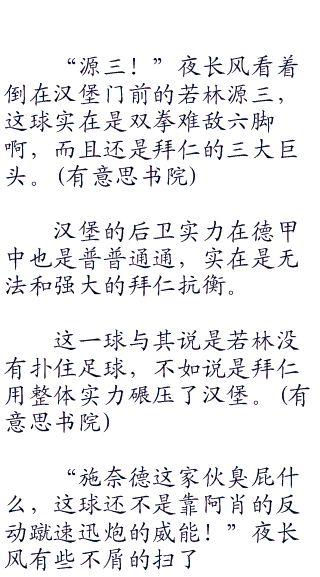 “源三！”夜长风看着
倒在汉堡门前的若林源三，
这球实在是双拳难敌六脚
啊，而且还是拜仁的三大巨
头。(有意思书院)
汉堡的后卫实力在德甲
中也是普普通通，实在是无
法和强大的拜仁抗衡。
这一球与其说是若林没
有扑住足球，不如说是拜仁
用整体实力碾压了汉堡。(有
意思书院)
“施奈德这家伙臭屁什
么，这球还不是靠阿肖的反
动蹴速迅炮的威能！”夜长
风有些不屑的扫了